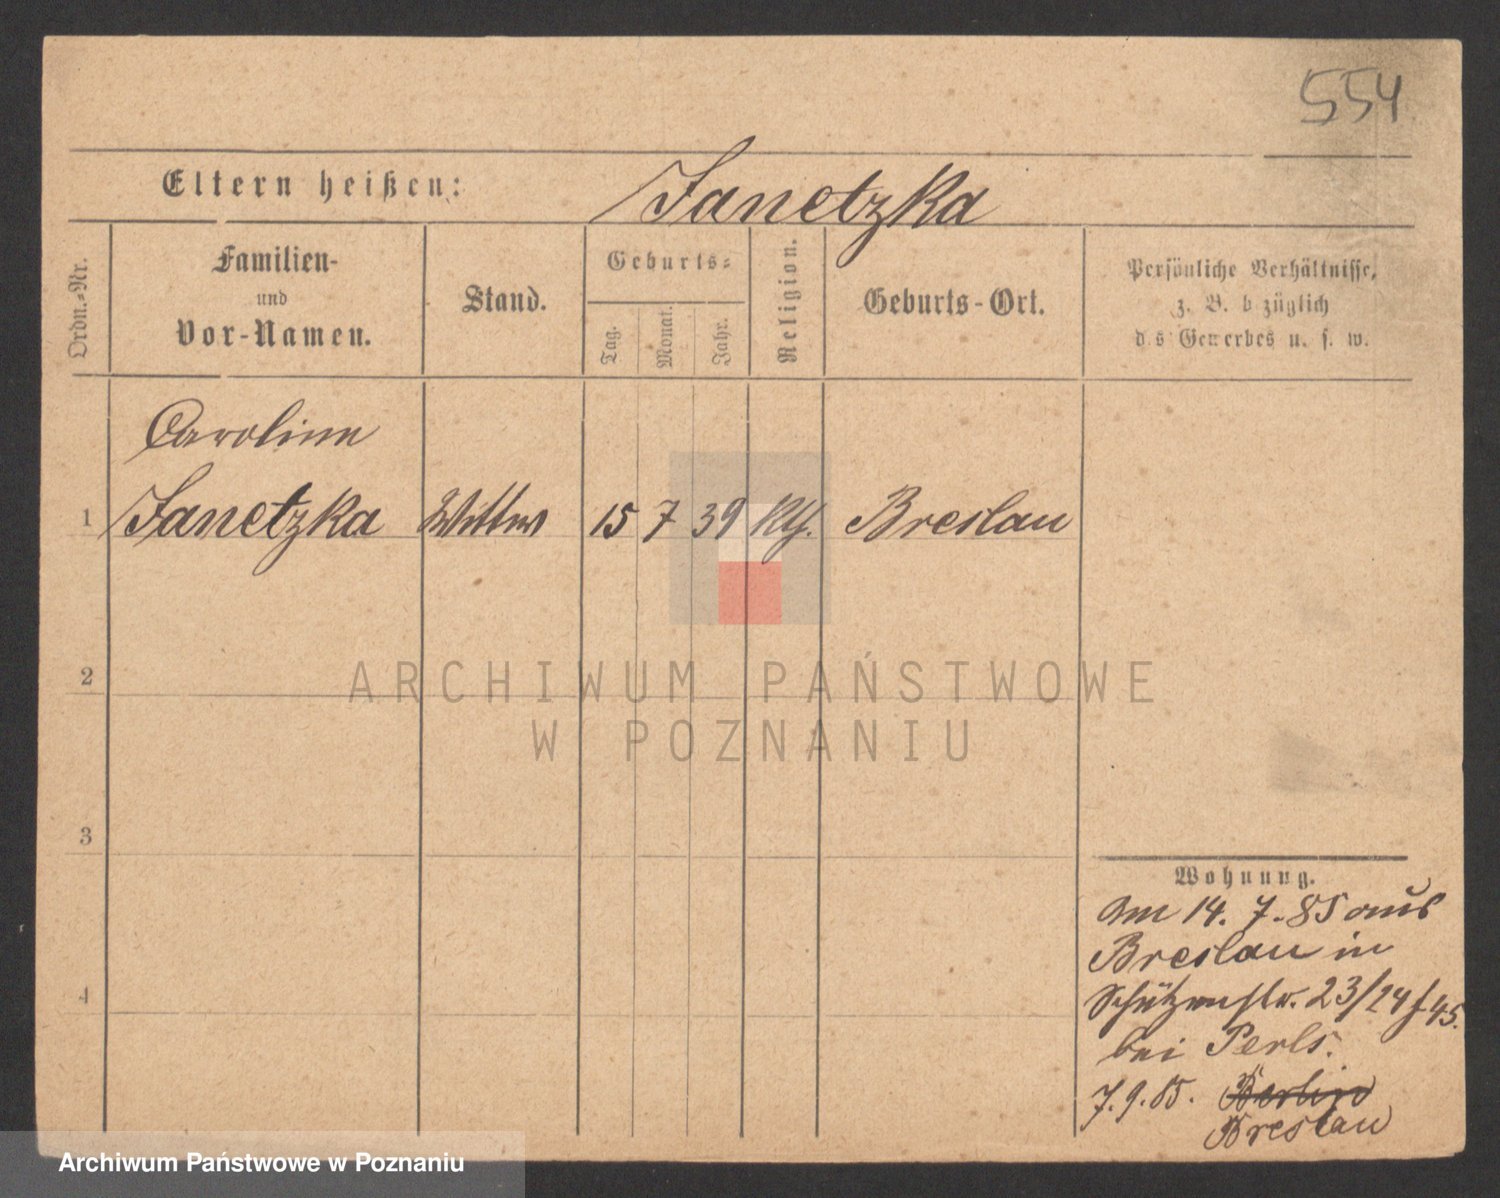 554
Eltern heißen: Janetzka
Ordn.-Nr.
Familien-
und
Vor-Namen.
Stand.
Geburts-
Tag.
Monat.
Jahr.
Religion.
Geburts-Ort.
Persönliche Verhältnisse,
z. B. b züglich
d s Gewerbes u. s. w.
Caroline
1 Janetzka Wittwe 15 7 39 Kth. Breslau
2
3
4
ARCHIWUM PAŃSTWOWE
W POZNANIU
Wohnung.
Am 14. 7. 85 aus
Breslau in
Schützenstr. 23/24
bei Perls.
7.9.85. Berlin
Breslau
Archiwum Państwowe w Poznaniu